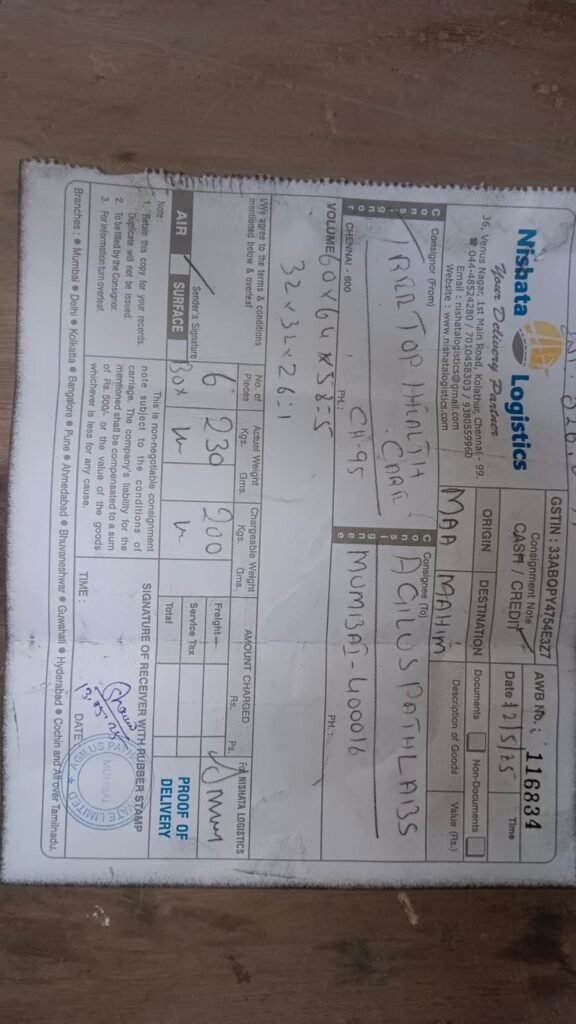 Nishata Logistics
Your Delivery Partner
36, Venus Nagar, 1st Main Road, Kolathur, Chennai - 99.
☎ 044-48524280 / 7010458303 / 9380559960
Email : nishatalogistics@gmail.com
Website : www.nishatalogistics.com
GSTIN : 33ABOPY4754E3Z7
Consignment Note
CASH / CREDIT
AWB No. : 116834
Date 12/5/25 Time
ORIGIN DESTINATION
MAA MAHIM
Documents Non-Documents
Description of Goods Value (Rs.)
Consignor
Consignor (From)
TOP HEALTH
CARE
CH-95
CHENNAI - 600 PH. :
Consignee
Consignee (To)
AGILUS PATHLABS
MUMBAI - 400016
PH. :
VOLUME 60 x 64 x 58 = 5
32 x 32 x 26 = 1
I/We agree to the terms & conditions
mentioned below & overleaf
Sender's Signature
AIR SURFACE
No. of Pieces
6
Actual Weight
Kgs. Gms.
230
Chargeable Weight
Kgs. Gms.
200
AMOUNT CHARGED
Rs. Ps.
Freight
Service Tax
Total
For NISHATA LOGISTICS
PROOF OF
DELIVERY
Note :
1. Retain this copy for your records.
Duplicate will not be issued.
2. To be filled by the Consignor.
3. For information turn overleaf.
This is non-negotiable consignment
note subject to the conditions of
carriage. The company's liability for the
mentioned shall be compensated to a sum
of Rs 500/- or the value of the goods
whichever is less for any cause.
SIGNATURE OF RECEIVER WITH RUBBER STAMP
13.05.25
TIME : DATE :
MUMBAI
Branches : ● Mumbai ● Delhi ● Kolkatta ● Bangalore ● Pune ● Ahmedabad ● Bhuvaneshwar ● Guwahati ● Hyderabad ● Cochin and All over Tamilnadu.